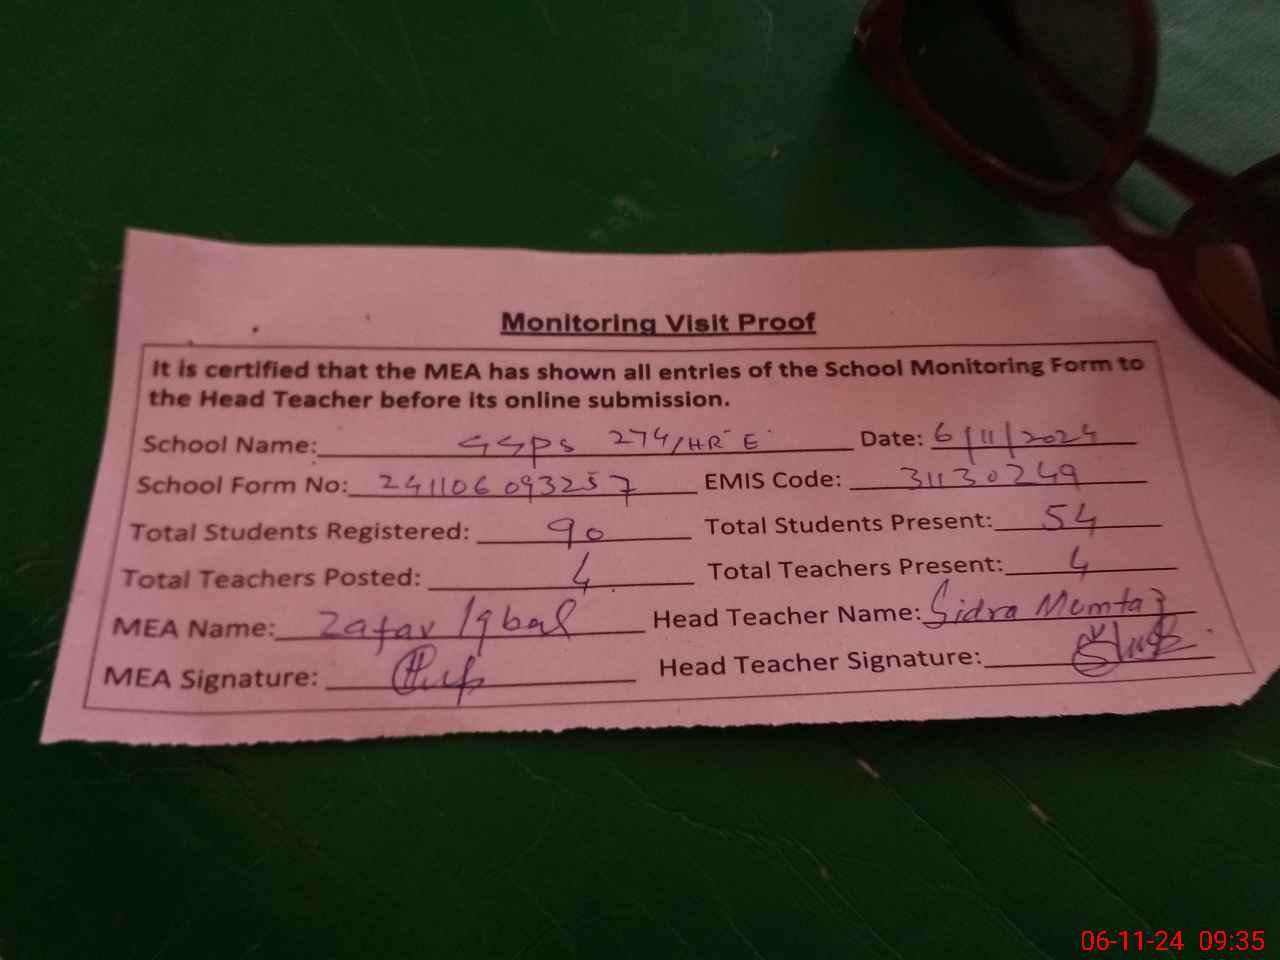 Monitoring Visit Proof
It is certified that the MEA has shown all entries of the School Monitoring Form to
the Head Teacher before its online submission.
School Name: GGPS 274/HR E Date: 6/11/2024
School Form No: 241106093257 EMIS Code: 31130249
Total Students Registered: 90 Total Students Present: 54
Total Teachers Posted: 4 Total Teachers Present: 4
MEA Name: Zafar Iqbal Head Teacher Name: Sidra Mumtaz
MEA Signature: Head Teacher Signature:
06-11-24 09:35